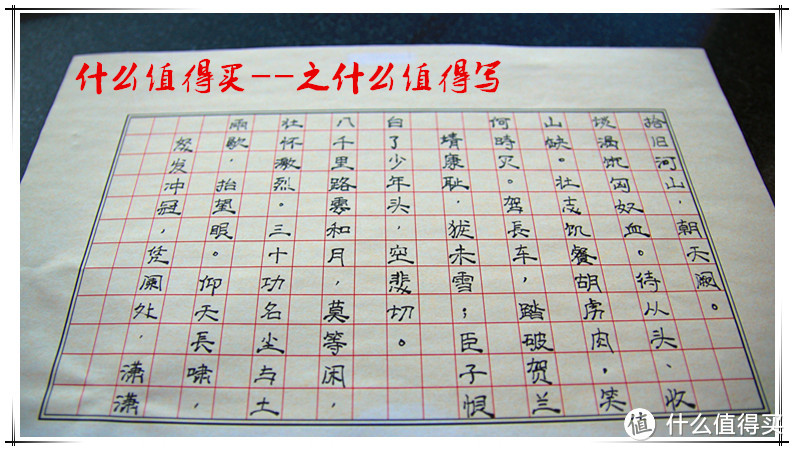 什么值得买--之什么值得写
怒发冲冠，凭阑处．潇潇
雨歇．抬望眼。仰天長啸，
壮怀激烈。三十功名尘与土
八千里路雲和月，莫等闲．
白了少年头，空悲切。
靖康耻．犹未雪；臣子恨
何時灭。驾長车，踏破贺兰
山缺。壮志饥餐胡虏肉，笑
谈渴饮匈奴血。待从头、收
拾旧河山，朝天阙。
值 什么值得买